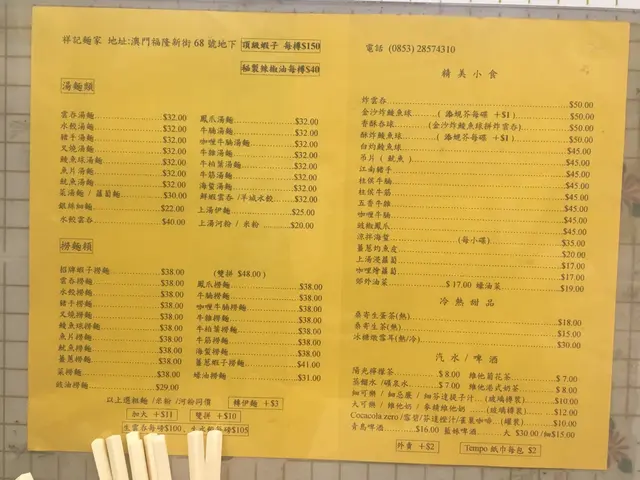 祥記麵家 地址:澳門福隆新街 68 號地下 頂級蝦子 每樽$150
秘製辣椒油每樽$40
湯麵類
雲吞湯麵 $32.00
水餃湯麵 $32.00
豬手湯麵 $32.00
叉燒湯麵 $32.00
鯪魚球湯麵 $32.00
魚片湯麵 $32.00
魷魚湯麵 $32.00
菜湯麵 / 蘿蔔麵 $30.00
銀絲細麵 $22.00
水餃雲吞 $40.00
鳳爪湯麵 $32.00
牛腩湯麵 $32.00
咖哩牛腩湯麵 $32.00
牛雜湯麵 $32.00
牛柏葉湯麵 $32.00
牛筋湯麵 $32.00
海蜇湯麵 $32.00
鮮蝦雲吞 /羊城水餃 $32.00
上湯伊麵 $25.00
上湯河粉 / 米粉 $20.00
撈麵類
招牌蝦子撈麵 $38.00
雲吞撈麵 $38.00
水餃撈麵 $38.00
豬手撈麵 $38.00
叉燒撈麵 $38.00
鯪魚球撈麵 $38.00
魚片撈麵 $38.00
魷魚撈麵 $38.00
薑蔥撈麵 $38.00
菜撈麵 $38.00
豉油撈麵 $29.00
(雙拼 $48.00)
鳳爪撈麵 $38.00
牛腩撈麵 $38.00
咖哩牛腩撈麵 $38.00
牛雜撈麵 $38.00
牛柏葉撈麵 $38.00
牛筋撈麵 $38.00
海蜇撈麵 $38.00
薑蔥蝦子撈麵 $41.00
蠔油撈麵 $31.00
以上選粗麵 /米粉 /河粉同價 轉伊麵 +$3
加大 +$11 雙拼 +$10
生雲吞每磅$100 生水餃每磅$105
電話 (0853) 28574310
精美小食
炸雲吞 $50.00
金沙炸鯪魚球 ( 添蜆芥每碟 +$1) $50.00
香酥吞球 (金沙炸鯪魚球拼炸雲吞) $50.00
酥炸鯪魚球 ( 添蜆芥每碟 +$1 ) $50.00
白灼鯪魚球 $45.00
吊片 ( 魷魚 ) $45.00
江南豬手 $45.00
柱侯牛腩 $45.00
柱侯牛筋 $45.00
五香牛雜 $45.00
咖哩牛腩 $45.00
豉椒鳳爪 $45.00
涼拌海蜇 (每小碟) $35.00
薑蔥灼魚皮 $20.00
上湯浸蘿蔔 $17.00
咖哩燴蘿蔔 $17.00
郊外油菜 $ 17.00 蠔油菜 $19.00
冷熱甜品
桑寄生蛋茶(熱) $18.00
桑寄生茶(熱) $15.00
冰糖燉雪耳(熱/冷) $30.00
汽水/啤酒
陽光檸檬茶 $ 8.00 維他菊花茶 $ 7.00
蒸餾水 /礦泉水 $ 7.00 維他港式奶茶 $ 8.00
細可樂 / 細忌廉 / 細芬達提子汁 (玻璃樽裝) $10.00
大可樂 / 維他奶 / 麥精維他奶 (玻璃樽裝) $12.00
Cocacola zero /雪碧/芬達橙汁/雀巢咖啡 (罐裝) $10.00
青島啤酒 $16.00 藍妹啤酒 大 $30.00 /細$15.00
外賣 +$2 Tempo 紙巾每包 $2